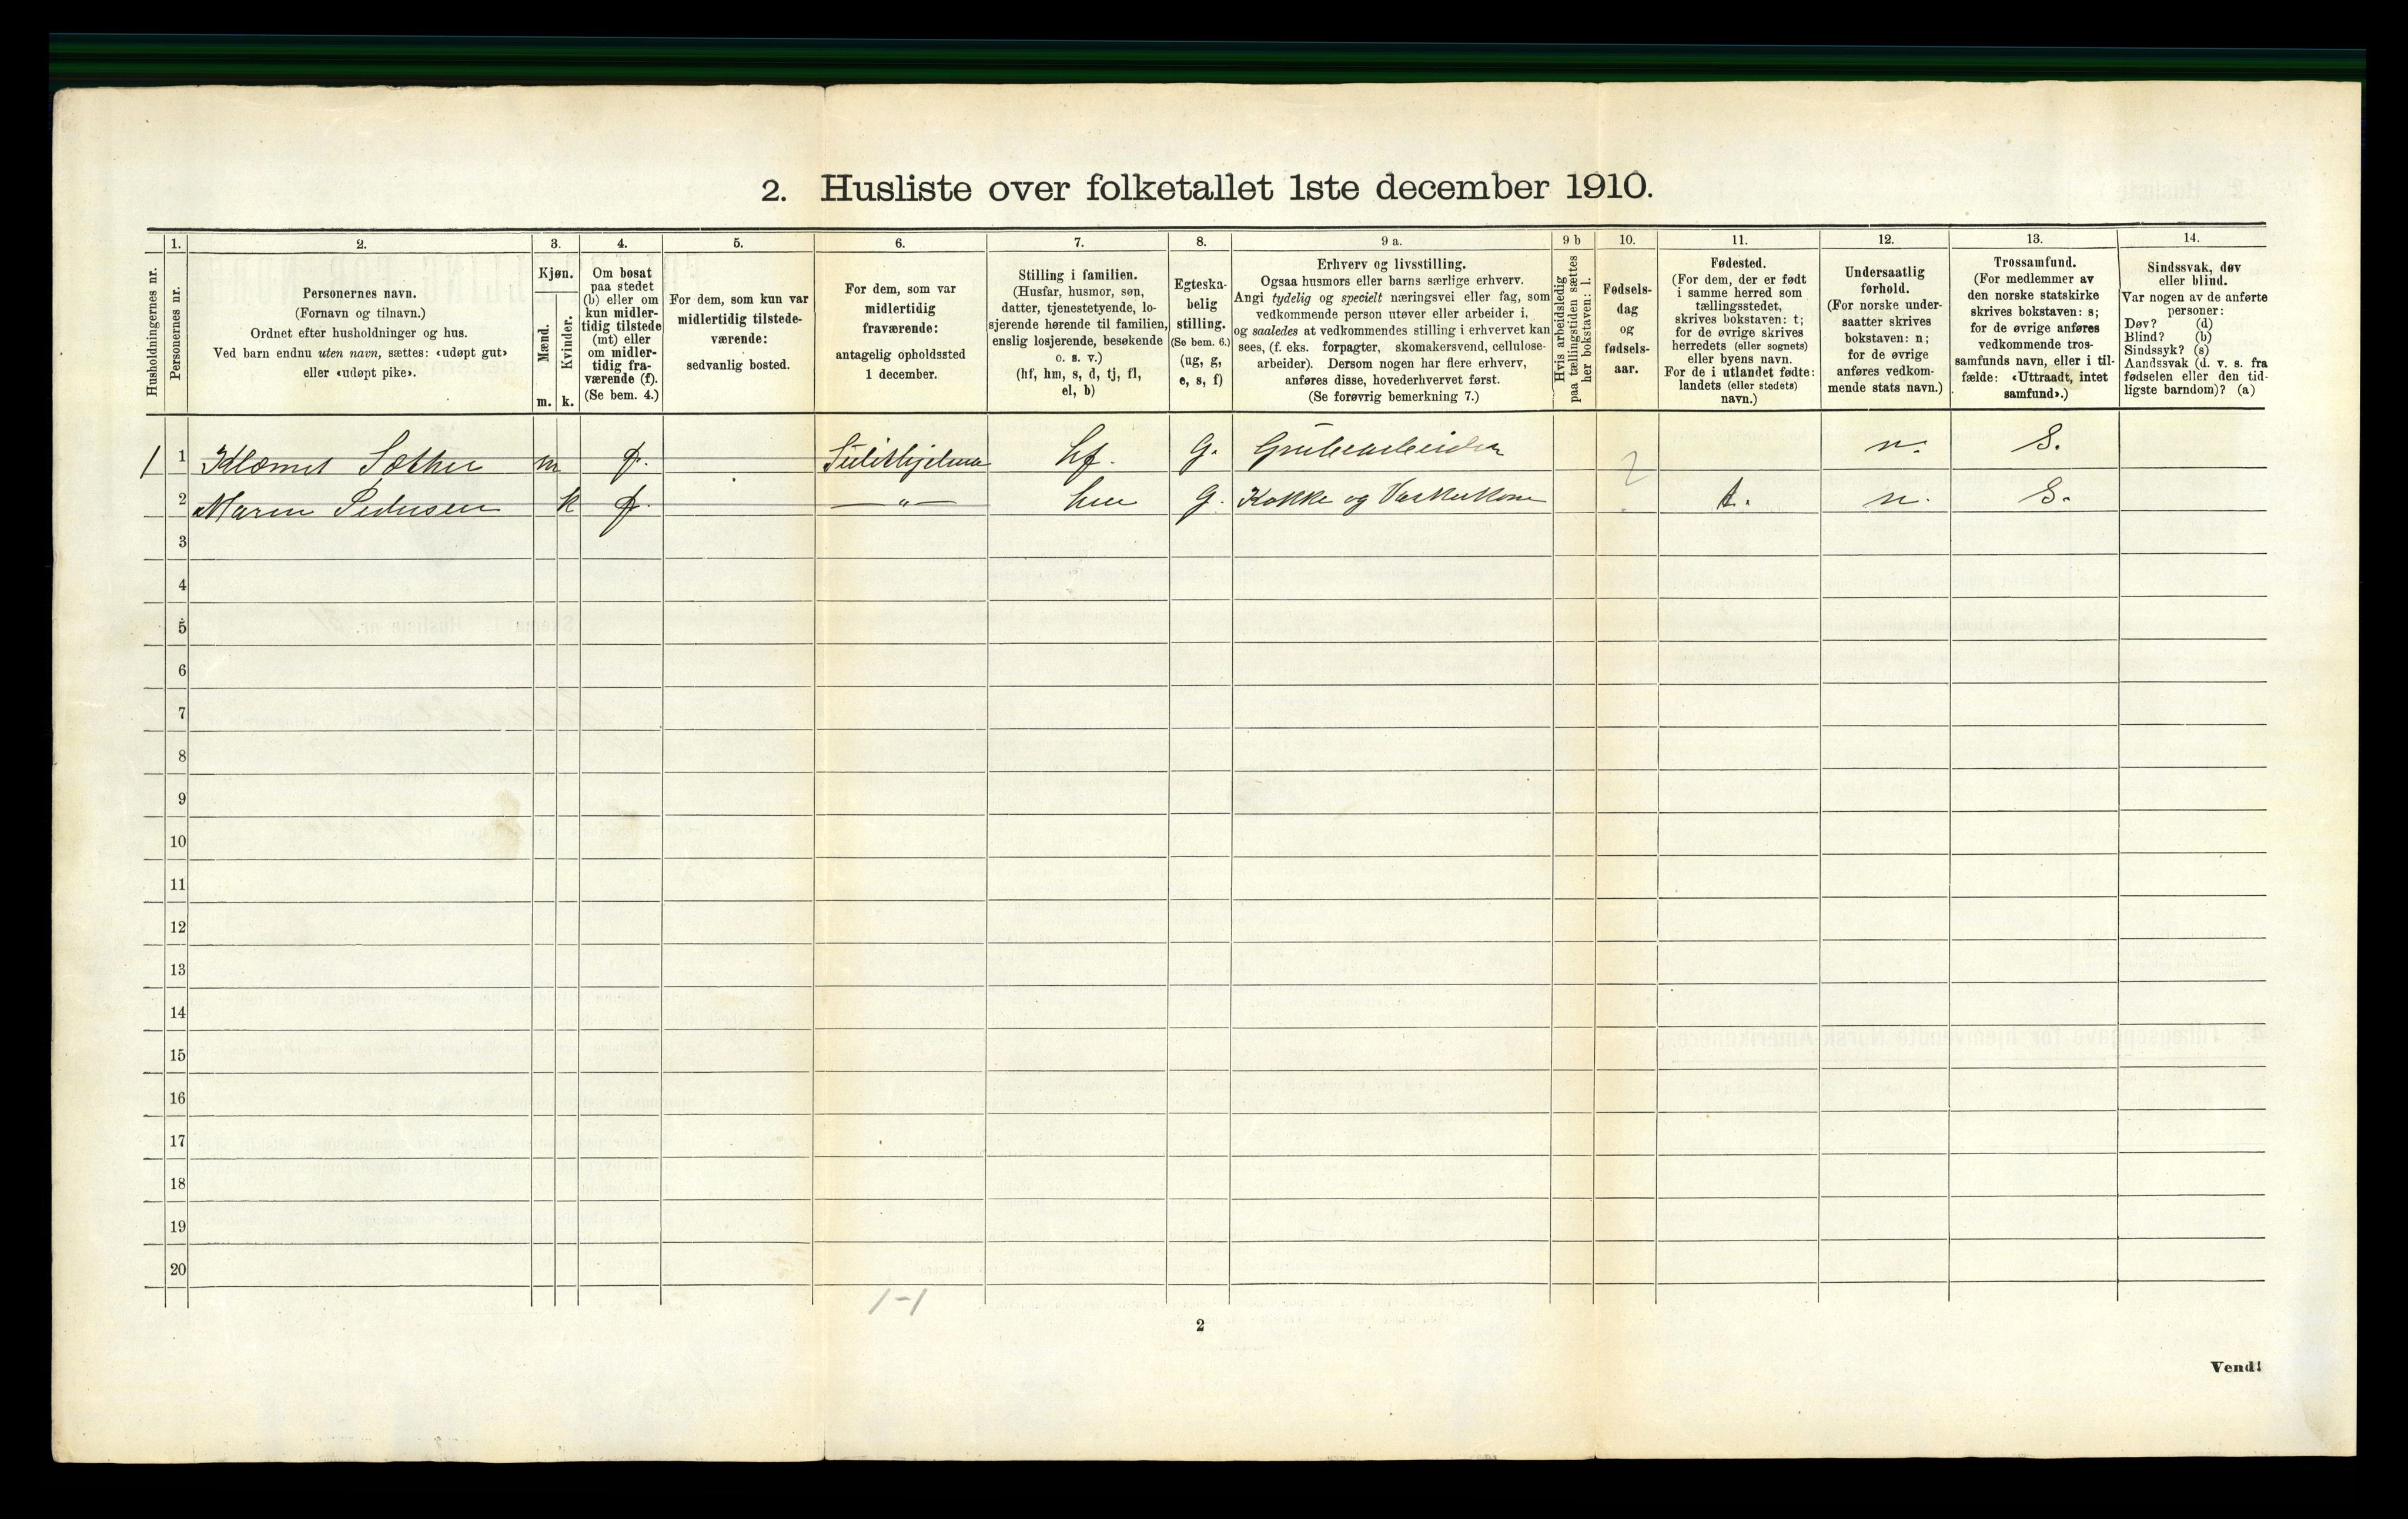 2. Husliste over folketallet 1ste december 1910.
Husholdningernes nr.
1.
Personernes nr.
2.
Personernes navn.
(Fornavn og tilnavn.)
Ordnet efter husholdninger og hus.
Ved barn endnu uten navn, sættes: «udøpt gut»
eller «udøpt pike».
3.
Kjøn.
Mænd.
Kvinder.
m. k.
4.
Om bosat
paa stedet
(b) eller om
kun midler-
tidig tilstede
(mt) eller
om midler-
tidig fra-
værende (f).
(Se bem. 4.)
5.
For dem, som kun var
midlertidig tilstede-
værende:
sedvanlig bosted.
6.
For dem, som var
midlertidig
fraværende:
antagelig opholdssted
1 december.
7.
Stilling i familien.
(Husfar, husmor, søn,
datter, tjenestetyende, lo-
sjerende hørende til familien,
enslig losjerende, besøkende
o. s. v.)
(hf, hm, s, d, tj, fl,
el, b)
8.
Egteska-
belig
stilling.
(Se bem. 6.)
(ug, g,
e, s, f)
9 a.
Erhverv og livsstilling.
Ogsaa husmors eller barns særlige erhverv.
Angi tydelig og specielt næringsvei eller fag, som
vedkommende person utøver eller arbeider i,
og saaledes at vedkommendes stilling i erhvervet kan
sees, (f. eks. forpagter, skomakersvend, cellulose-
arbeider). Dersom nogen har flere erhverv,
anføres disse, hovederhvervet først.
(Se forøvrig bemerkning 7.)
9 b
Hvis arbeidsledig
paa tællingstiden sættes
her bokstaven: l.
10.
Fødsels-
dag
og
fødsels-
aar.
11.
Fødested.
(For dem, der er født
i samme herred som
tællingsstedet,
skrives bokstaven: t;
for de øvrige skrives
herredets (eller sognets)
eller byens navn.
For de i utlandet fødte:
landets (eller stedets)
navn.)
12.
Undersaatlig
forhold.
(For norske under-
saatter skrives
bokstaven: n;
for de øvrige
anføres vedkom-
mende stats navn.)
13.
Trossamfund.
(For medlemmer av
den norske statskirke
skrives bokstaven: s;
for de øvrige anføres
vedkommende tros-
samfunds navn, eller i til-
fælde: «Uttraadt, intet
samfund».)
14.
Sindssvak, døv
eller blind.
Var nogen av de anførte
personer:
Døv? (d)
Blind? (b)
Sindssyk? (s)
Aandssvak (d. v. s. fra
fødselen eller den tid-
ligste barndom)? (a)
1 1 Klemet Sæther m f. Sulithjelma hf. G. Grubearbeider n. S.
2 Maren Pedersen k f. — „ — hm G. Kokke og Vaskekone t. n. S.
3
4
5
6
7
8
9
10
11
12
13
14
15
16
17
18
19
20
1-1
2
Vend!